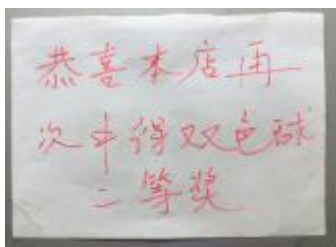 恭喜本店再
次中得双色球
二等奖